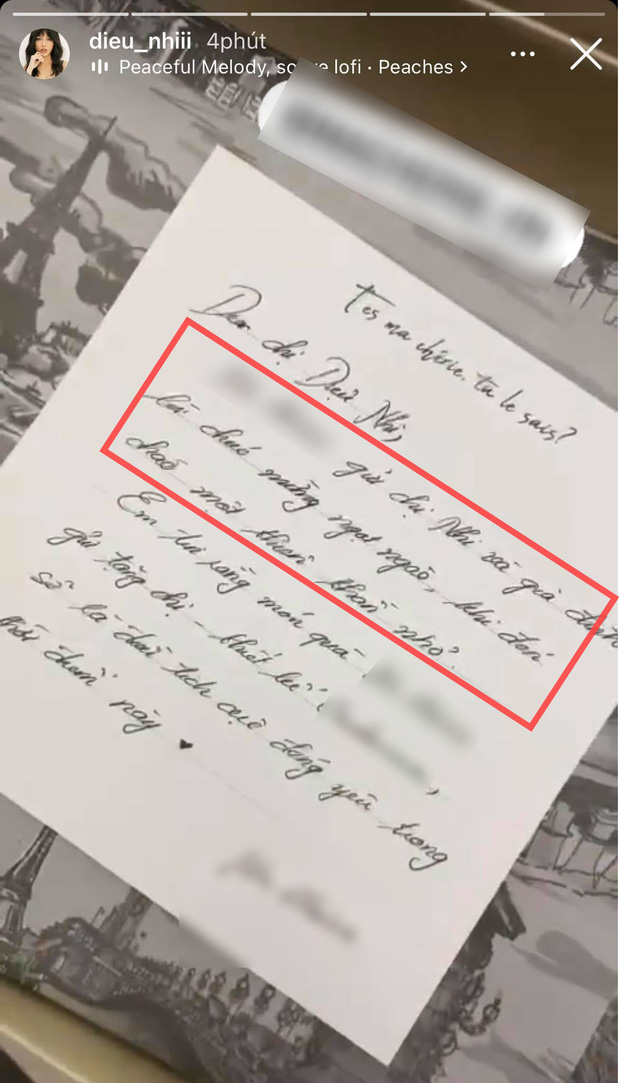 dieu_nhiii 4phút
Peaceful Melody, lofi · Peaches >
T'es ma chérie tu le sais?
Dear chị Diệu Nhi,
gửi chị Nhi và gia đình
lời chúc mừng ngọt ngào, khi đón
chào một thiên thần nhỏ.
Em tin rằng món quà
gửi tặng chị - thiết kế
sẽ là dấu tích cực đáng yêu trong
thời điểm này ♥